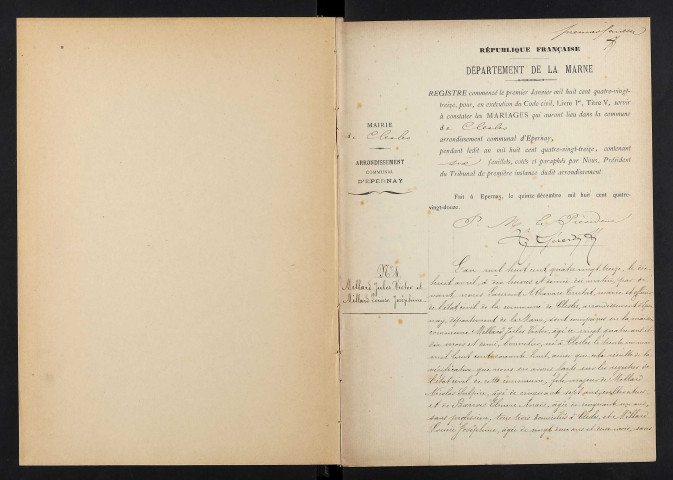 premier feuillet
RÉPUBLIQUE FRANÇAISE
DÉPARTEMENT DE LA MARNE
REGISTRE commencé le premier Janvier mil huit cent quatre-vingt-
treize, pour, en exécution du Code civil, Livre Ier, Titre V, servir
à constater les MARIAGES qui auront lieu dans la commune
de Clesles
arrondissement communal d'Epernay,
pendant ledit an mil huit cent quatre-vingt-treize, contenant
six feuillets, cotés et paraphés par Nous, Président
du Tribunal de première instance dudit arrondissement.
Fait à Epernay, le quinze décembre mil huit cent quatre-
vingt-douze.
MAIRIE
de Clesles
ARRONDISSEMENT
COMMUNAL
D'EPERNAY
P. M. le Président
N° 1
Millard Jules Victor et
Millard Louise Joséphine
L'an mil huit cent quatre vingt treize, le dix
huit avril, à dix heures et demie du matin, par de
vant nous Laurent officier
de l'état civil de la commune de Clesles, arrondissement d'Eper
nay, département de la Marne, sont comparus en la maison
commune Millard Jules Victor, âgé de vingt quatre ans et
dix mois et demi, né à Clesles le
mil huit cent soixante huit, ainsi que cela résulte de la
vérification que nous en avons faite sur les registres de
l'état civil de cette commune, fils majeur de Millard
Nicolas âgé de cinquante sept ans, cultivateur
et de Barrois âgée de cinquante ans,
sans profession, tous trois domiciliés à Clesles, et Millard
Louise Joséphine, âgée de vingt deux ans et deux mois, sans